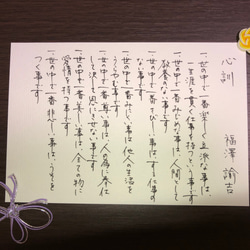 心訓　福澤諭吉
一、世の中で一番楽しく立派な事は
一生涯を貫く仕事を持つという事です
一、世の中で一番みじめな事は人間として
教養のない事です
一、世の中で一番さびしい事はする仕事の
ない事です
一、世の中で一番みにくい事は他人の生活を
うらやむ事です
一、世の中で一番尊い事は人の為に奉仕
して決して恩にきせない事です
一、世の中で一番美しい事は全ての物に
愛情を持つ事です
一、世の中で一番悲しい事はうそを
つく事です